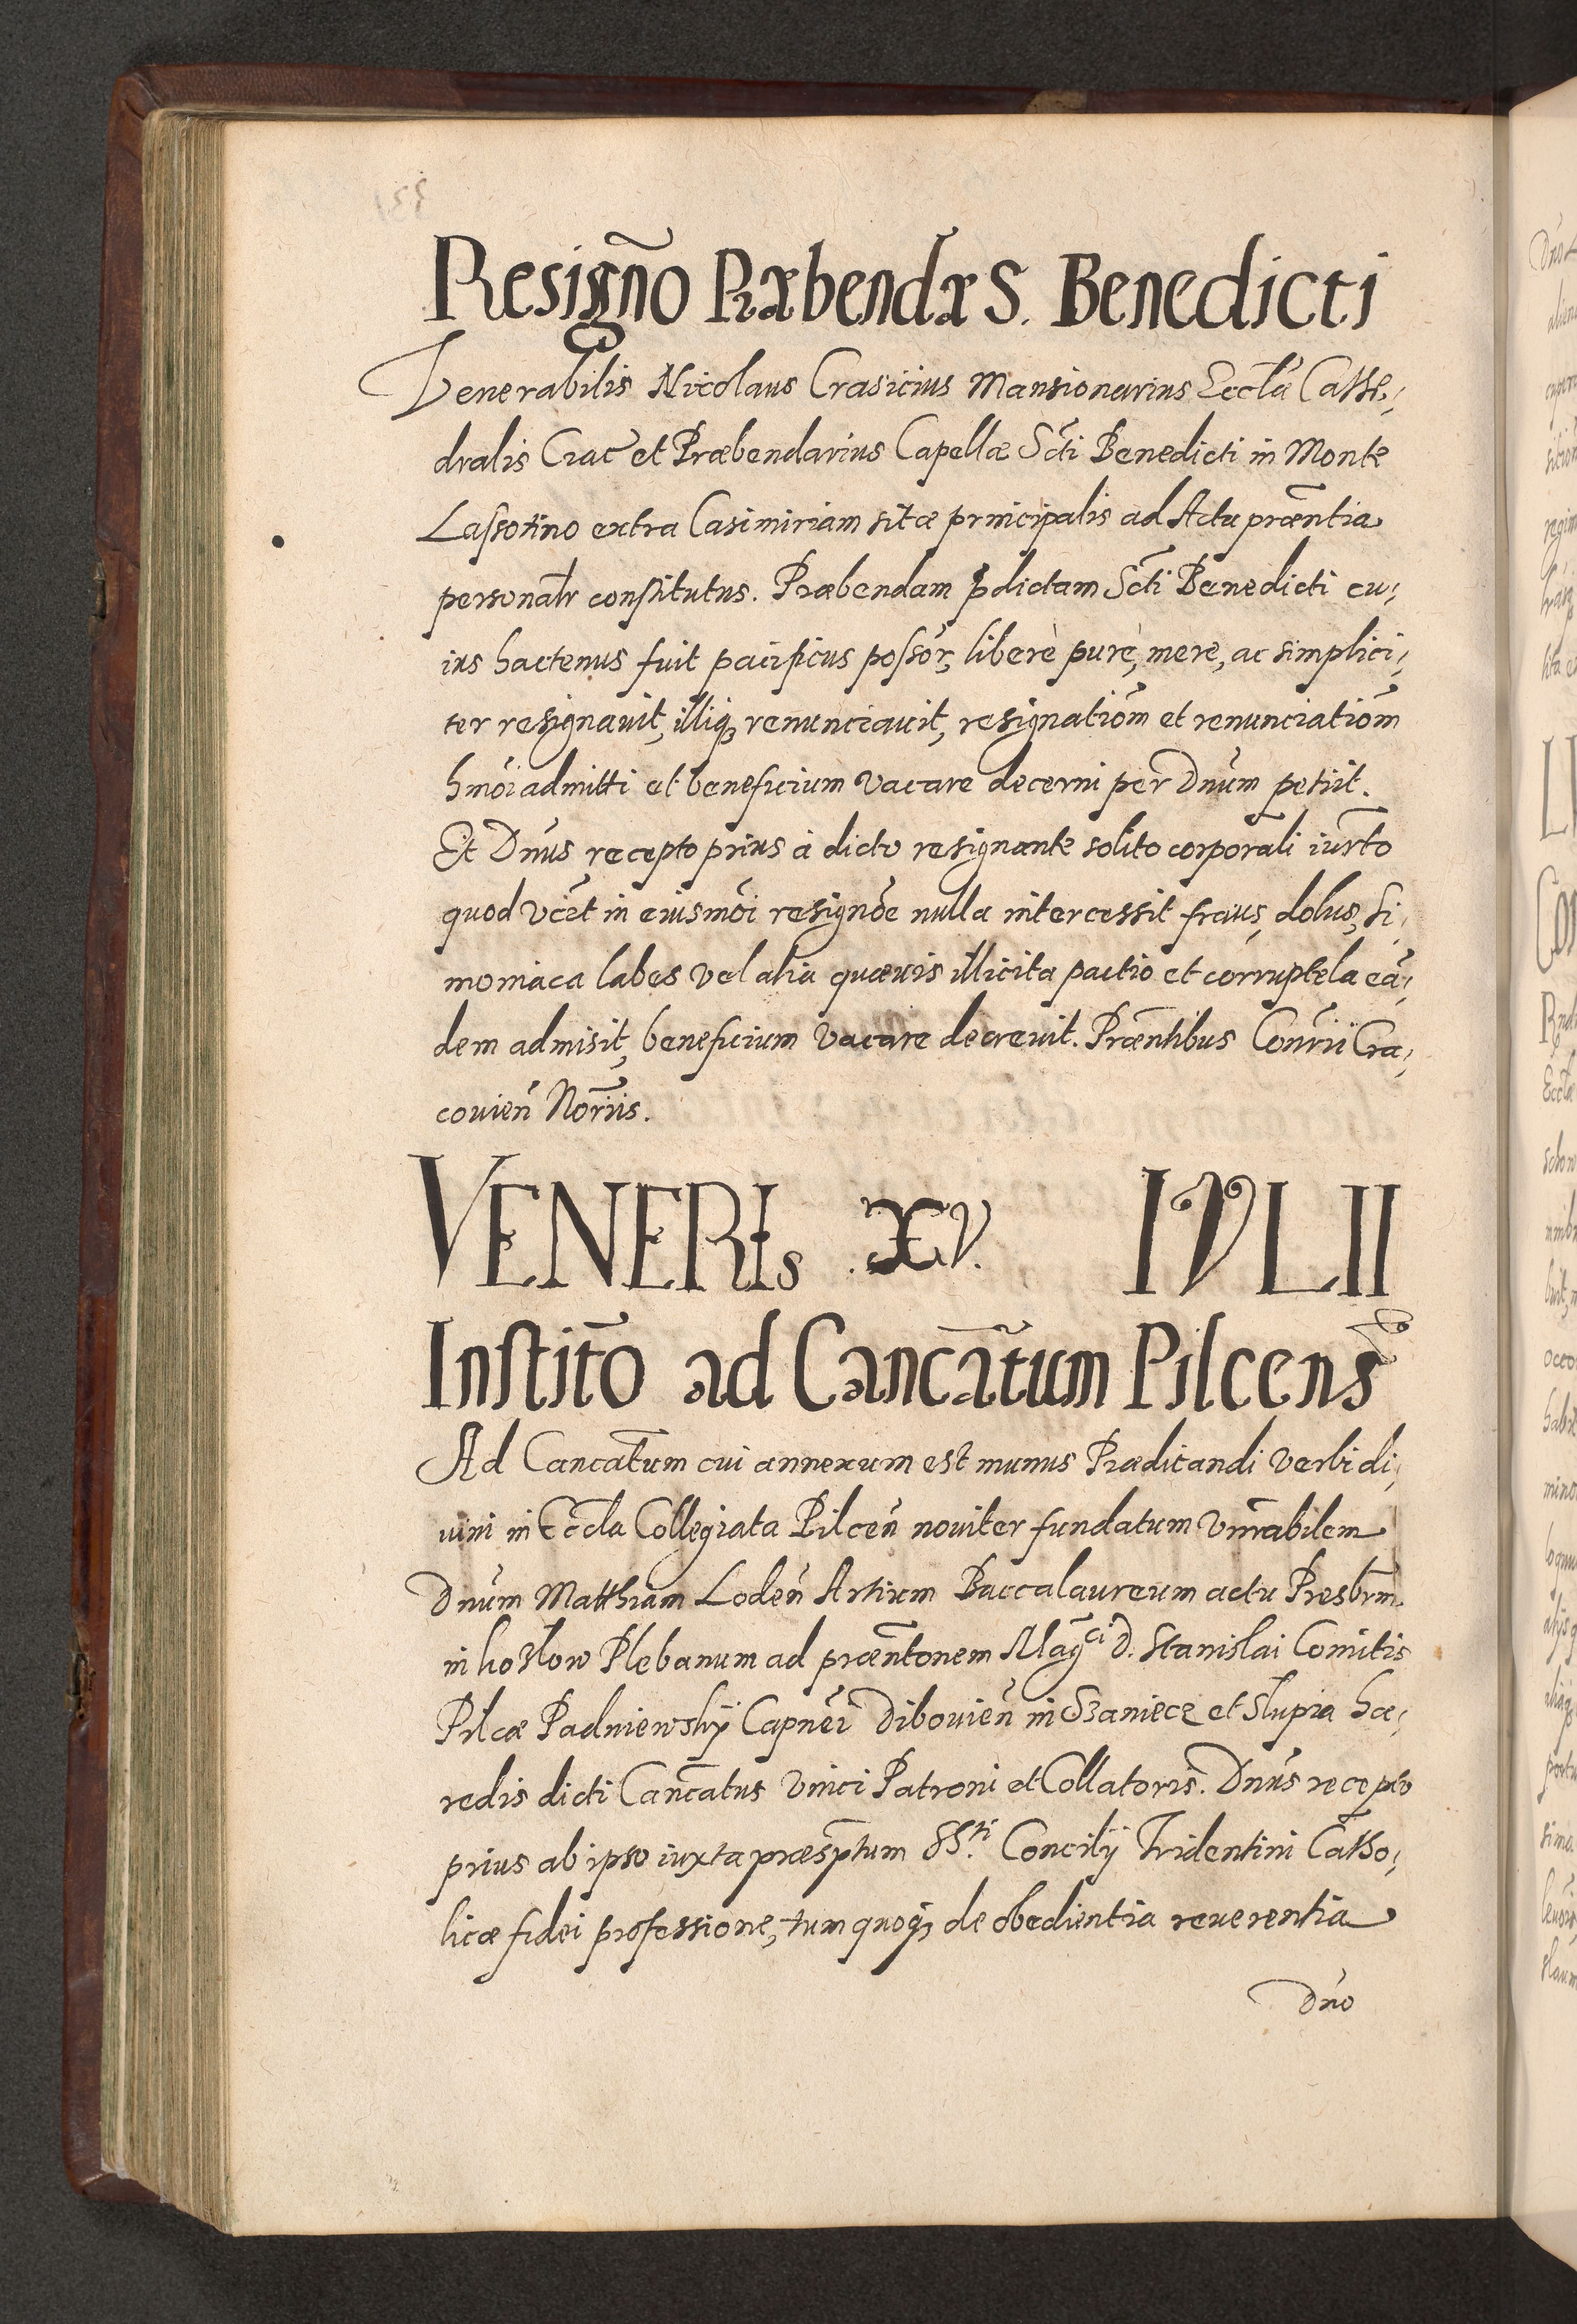 Resigño Præbendæ S. Benedicti
Venerabilis Nicolaus Crasicius Mansionarius Ecctæ Cathe,
dralis Crac̃ et Præbendarius Capellæ Scti Benedicti in Monte
Lassotino extra Casimiriam sitæ principalis ad Acta præntia
personatr constitutus. Præbendam pdictam Scti Benedicti cu,
ius hactenus fuit pacificus possor, liberè purè, mere, ac simplici,
ter resignauit, illiq₃ renunciauit, resignatiom̃ et renunciatiom̃
hmõi admitti et beneficium vacare decerni per Dnum petiit.
Et Dnus recepto prius à dicto resignante solito corporali iurto
quod vcet in eiusmõi resignõe nulla intercessit fraus, dolus, si,
moniaca labes vel alia quæuis illicita pactio et corruptela eã,
dem admisit, beneficium vacare decreuit. Præntibus Conrii Cra,
couieñ Noriis.
VENERIs .XV. IVLII
Institõ ad Cancãtum Pilcens
Ad Cancatum cui annexum est munus Prædicandi verbi di,
uini in Eccla Collegiata Pilceñ nouiter fundatum vnrabilem
Dnum Matthiam Lodeñ Artium Baccalaureum actu Presbrm
in kozlow Plebanum ad præntonem Mag^ci D. Stanislai Comitis
Pilcæ Padniewskij Capnei Dibouieñ in Szaniecz et Slupia hæ,
redis dicti Cancatus vnici Patroni et Collatoris. Dnus recepto
prius ab ipso iuxta præsptum SS.^ti Concilij Tridentini Catho,
licæ fidei professione, tum quoq₃ de obedientia reuerentia
Dño